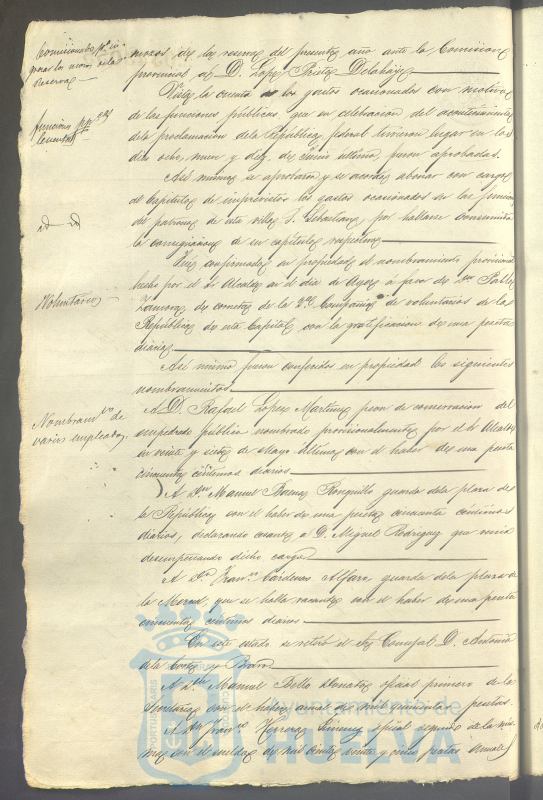 Comisionado pª in-
gresar los mozos de la
reserva
mozos de la reserva del presente año ante la Comision
provincial á D. Lopez
Vista la cuenta de los gastos ocasionados con motivo
funcion
de las funciones públicas, que en celebracion del acontecimiento
de la proclamacion de la República federal tuvieron lugar en los
dias ocho, nueve y diez de Junio último, fueron aprobadas.
Asi mismo se aprobaron y se acordó abonar con cargo
al Capitulo de imprevistos los gastos ocasionados en las funciones
id id
del patrono de esta villa S. Sebastian, por hallarse consumida
la consignacion de su capitulo respectivo
Voluntarios
Fué confirmado en propiedad el nombramiento provisional
hecho por el Sr Alcalde en el dia de Ayer á favor de Don Pablo
Zamora de corneta de la 2ª Compañia de voluntarios de la
República de esta Capital con la gratificacion de una peseta
diaria
Asi mismo fueron conferidos en propiedad los siguientes
nombramientos
Nombramto de
varios empleados
A D. Rafael Lopez Martinez peon de conservacion del
empedrado público nombrado provisionalmente por el Sr Alcalde
en veinte y siete de Mayo último con el haber de una peseta
cincuenta céntimos diarios
A Dn Manuel Ronquillo guarda de la plaza de
la República con el haber de una peseta cincuenta centimos
diarios, declarando cesante á D. Miguel Rodriguez que venia
desempeñando dicho cargo
A Dn Franco Cárdenas Alfaro guarda de la plaza de
la Merced, que se halla vacante con el haber de una peseta
cincuenta centimos diarios
En este estado se retiró el Sr Concejal D. Antonio
de la Corte y Bravo
A Dn Manuel Bello oficial primero de la
Secretaria con el haber anual de mil quinientas pesetas.
A Dn Franco Jimenez oficial segundo de la mis-
ma con el sueldo de mil ciento veinte y cinco pesetas anuales
PORTUS MARIS
Ayuntamiento de
HUELVA